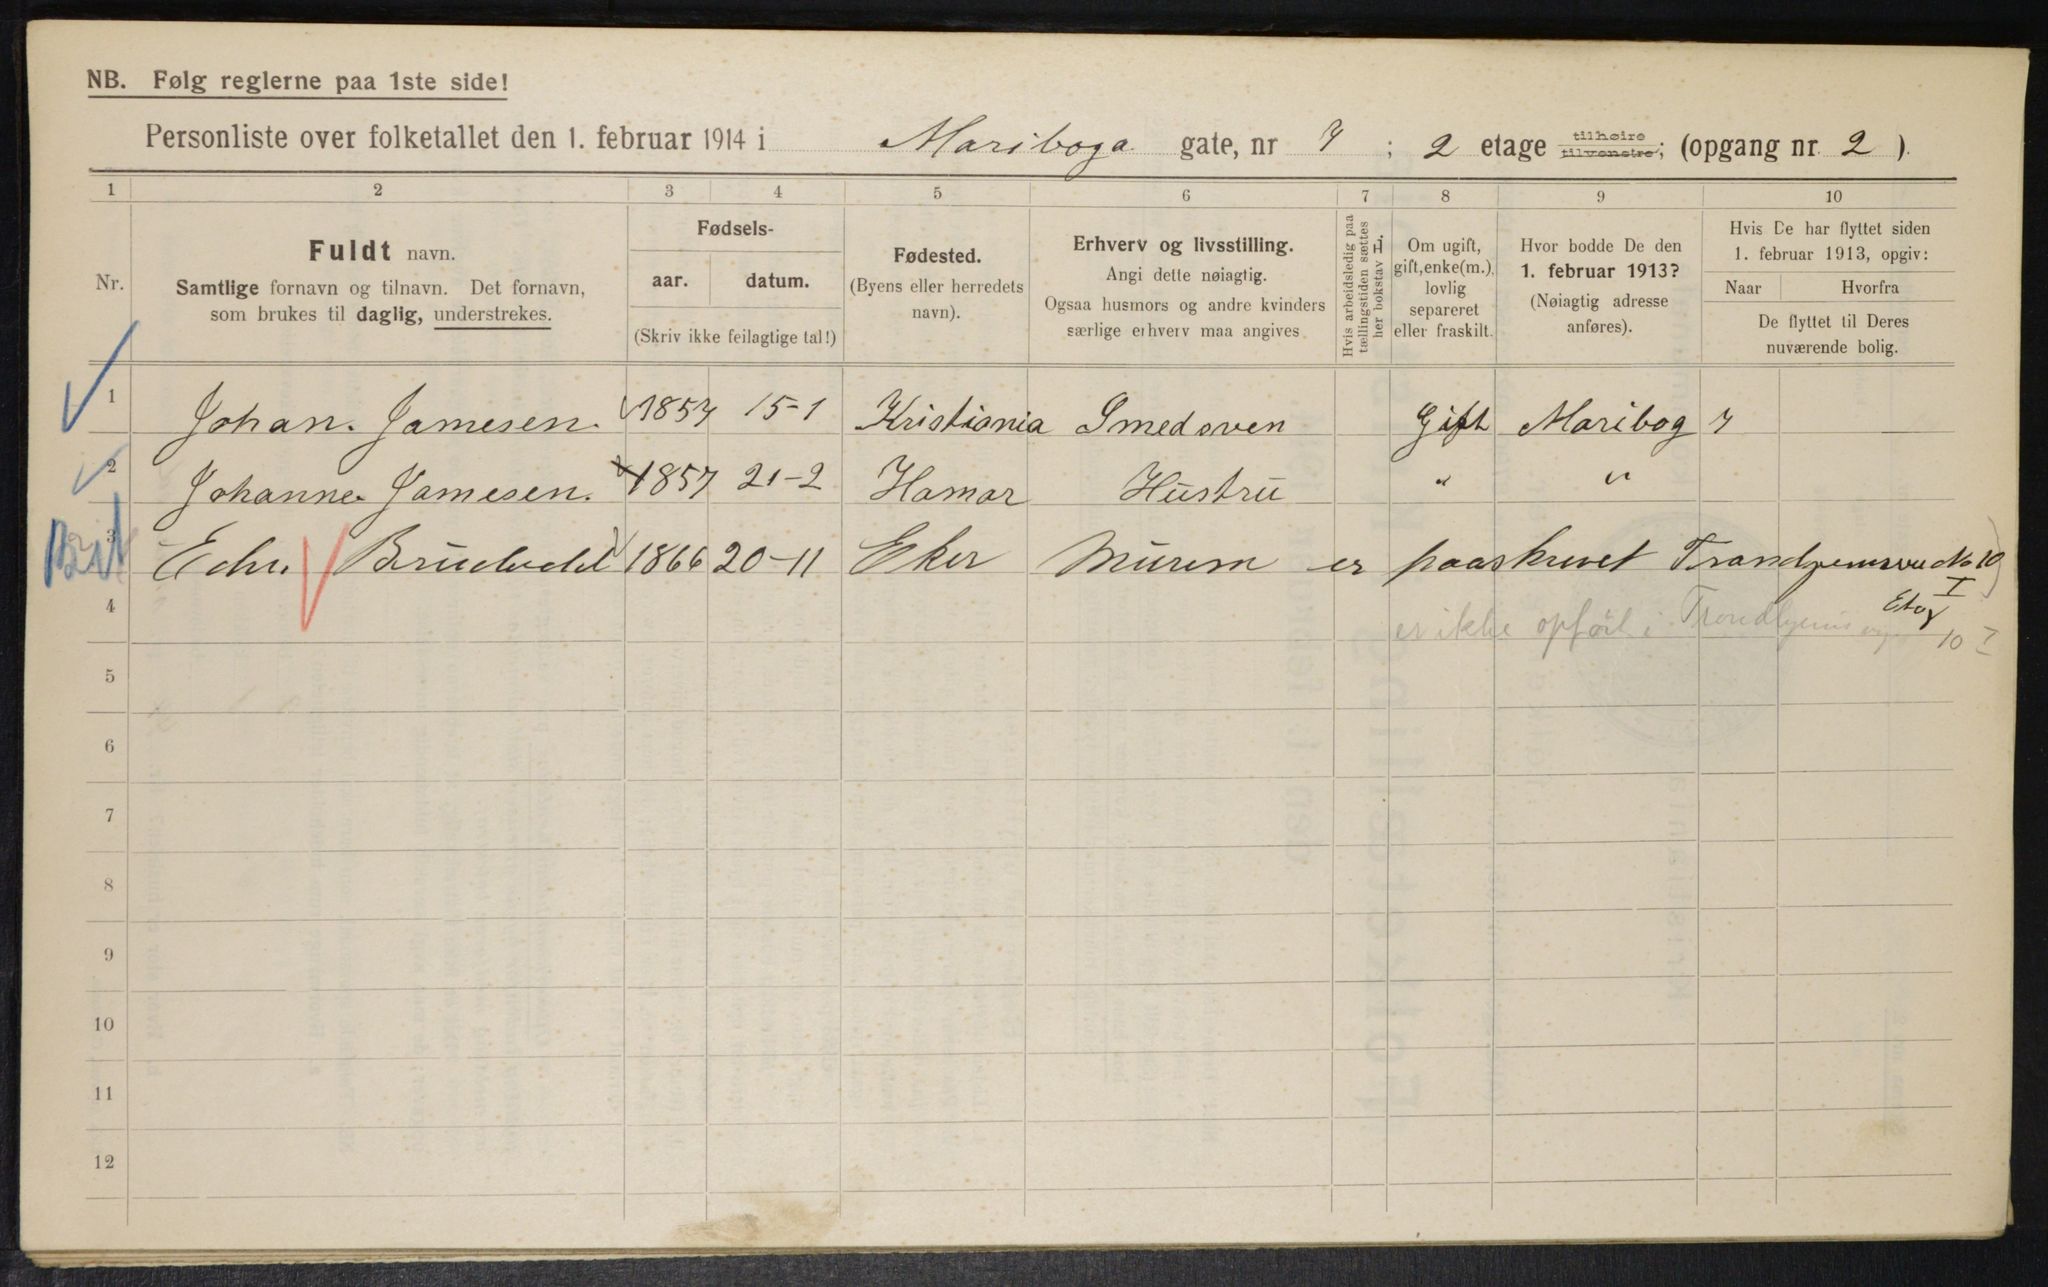 NB. Følg reglerne paa 1ste side!
Personliste over folketallet den 1. februar 1914 i Mariboga gate, nr 7; 2 etage tilhøire tilvenstre; (opgang nr 2).
1 2 3 4 5 6 7 8 9 10
Nr.
Fuldt navn.
Samtlige fornavn og tilnavn. Det fornavn,
som brukes til daglig, understrekes.
Fødsels-
aar. datum.
(Skriv ikke feilagtige tal!)
Fødested.
(Byens eller herredets
navn).
Erhverv og livsstilling.
Angi dette nøiagtig.
Ogsaa husmors og andre kvinders
særlige erhverv maa angives
Hvis arbeidsledig paa
tællingstiden sættes
her bokstav L.
Om ugift,
gift, enke(m.),
lovlig
separeret
eller fraskilt.
Hvor bodde De den
1. februar 1913?
(Nøiagtig adresse
anføres).
Hvis De har flyttet siden
1. februar 1913, opgiv:
Naar Hvorfra
De flyttet til Deres
nuværende bolig.
1 Johan. Jamesen. 1857 15-1 Kristiania Smedsven Gift Maribog 7
2 Johanne Jamesen. 1857 21-2 Hamar Hustru " "
3 1866 20-11 Eker er paaskrevet No 10
I
Etag
4 er ikke opført i Trondhjemsvei 10 I
5
6
7
8
9
10
11
12